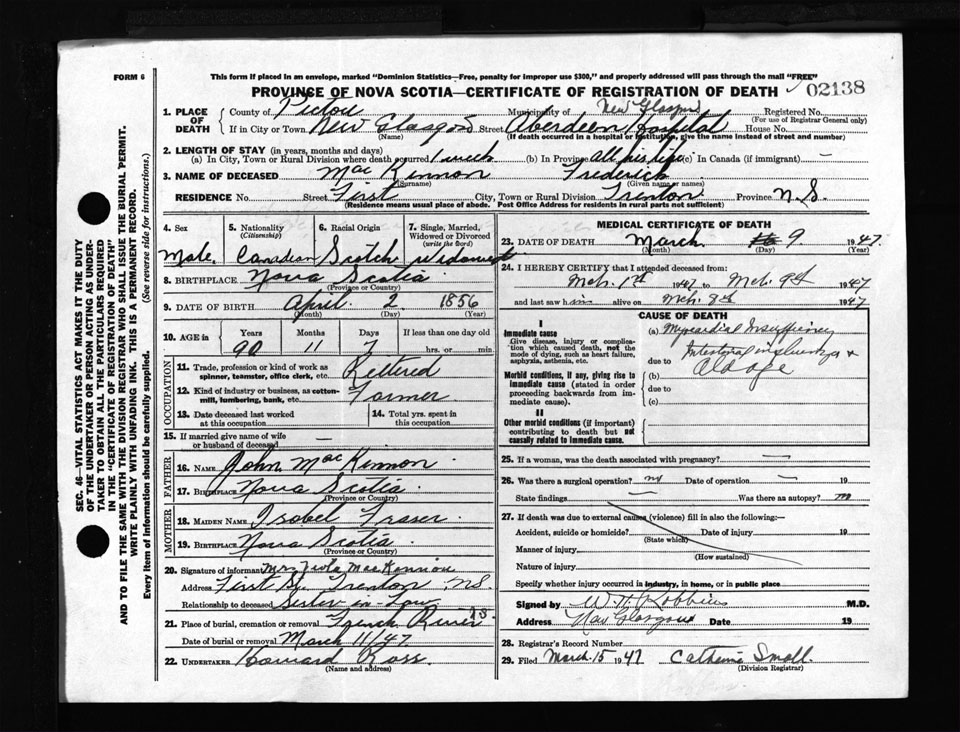 FORM 6
This form if placed in an envelope, marked "Dominion Statistics—Free, penalty for improper use $300," and properly addressed will pass through the mail "FREE"
PROVINCE OF NOVA SCOTIA—CERTIFICATE OF REGISTRATION OF DEATH
02138
SEC. 46—VITAL STATISTICS ACT MAKES IT THE DUTY
OF THE UNDERTAKER OR PERSON ACTING AS UNDER-
TAKER TO OBTAIN ALL THE PARTICULARS REQUIRED
IN THE "CERTIFICATE OF REGISTRATION OF DEATH"
AND TO FILE THE SAME WITH THE DIVISION REGISTRAR WHO SHALL ISSUE THE BURIAL PERMIT.
WRITE PLAINLY WITH UNFADING INK. THIS IS A PERMANENT RECORD.
Every item of information should be carefully supplied. (See reverse side for instructions.)
1. PLACE OF DEATH
County of Pictou Municipality of New Glasgow Registered No.
(For use of Registrar General only)
If in City or Town New Glasgow Street Aberdeen Hospital House No.
(Name) (If death occurred in a hospital or institution, give the name instead of street and number)
2. LENGTH OF STAY (in years, months and days)
(a) In City, Town or Rural Division where death occurred 1 week (b) In Province All his life (c) In Canada (if immigrant) —
3. NAME OF DECEASED Mac Kinnon Frederick
(Surname) (Given name or names)
RESIDENCE No. Street First City, Town or Rural Division Trenton Province N.S.
(Residence means usual place of abode. Post Office Address for residents in rural parts not sufficient)
4. Sex 5. Nationality (Citizenship) 6. Racial Origin 7. Single, Married, Widowed or Divorced (write the word)
Male Canadian Scotch Widowed
8. BIRTHPLACE Nova Scotia
(Province or Country)
9. DATE OF BIRTH April 2 1856
(Month) (Day) (Year)
10. AGE in Years Months Days If less than one day old
90 11 7 hrs. or min.
OCCUPATION
11. Trade, profession or kind of work as spinner, teamster, office clerk, etc. Rettered
12. Kind of industry or business, as cotton-mill, lumbering, bank, etc. Farmer
13. Date deceased last worked at this occupation
14. Total yrs. spent in this occupation
15. If married give name of wife or husband of deceased —
FATHER
16. NAME John Mac Kinnon
17. BIRTHPLACE Nova Scotia
(Province or Country)
MOTHER
18. MAIDEN NAME Isobel Fraser
19. BIRTHPLACE Nova Scotia
(Province or Country)
20. Signature of informant Mrs MacKinnon
Address First St. Trenton NS
Relationship to deceased Sister in Law
21. Place of burial, cremation or removal French River NS
Date of burial or removal March 11/47
22. UNDERTAKER Howard Ross
(Name and address)
MEDICAL CERTIFICATE OF DEATH
23. DATE OF DEATH March 9 1947
(Month) (Day) (Year)
24. I HEREBY CERTIFY that I attended deceased from:
Mch. 1st 1947 to Mch. 9th 1947
and last saw him alive on Mch. 8th 1947
CAUSE OF DEATH
I
Immediate cause
Give disease, injury or complication which caused death, not the mode of dying, such as heart failure, asphyxia, asthenia, etc.
(a) Myocardial Insufficiency
due to Intestinal influenza &
Old age
Morbid conditions, if any, giving rise to immediate cause (stated in order proceeding backwards from immediate cause).
(b)
due to
(c)
II
Other morbid conditions (if important) contributing to death but not causally related to immediate cause.
25. If a woman, was the death associated with pregnancy? —
26. Was there a surgical operation? no Date of operation — 19
State findings — Was there an autopsy? no
27. If death was due to external causes (violence) fill in also the following:—
Accident, suicide or homicide? Date of injury 19
(State which)
Manner of injury
(How sustained)
Nature of injury
Specify whether injury occurred in industry, in home, or in public place
Signed by W. H. Robbins M.D.
Address New Glasgow Date 19
28. Registrar's Record Number
29. Filed March 15 1947 Catherine Small
(Division Registrar)